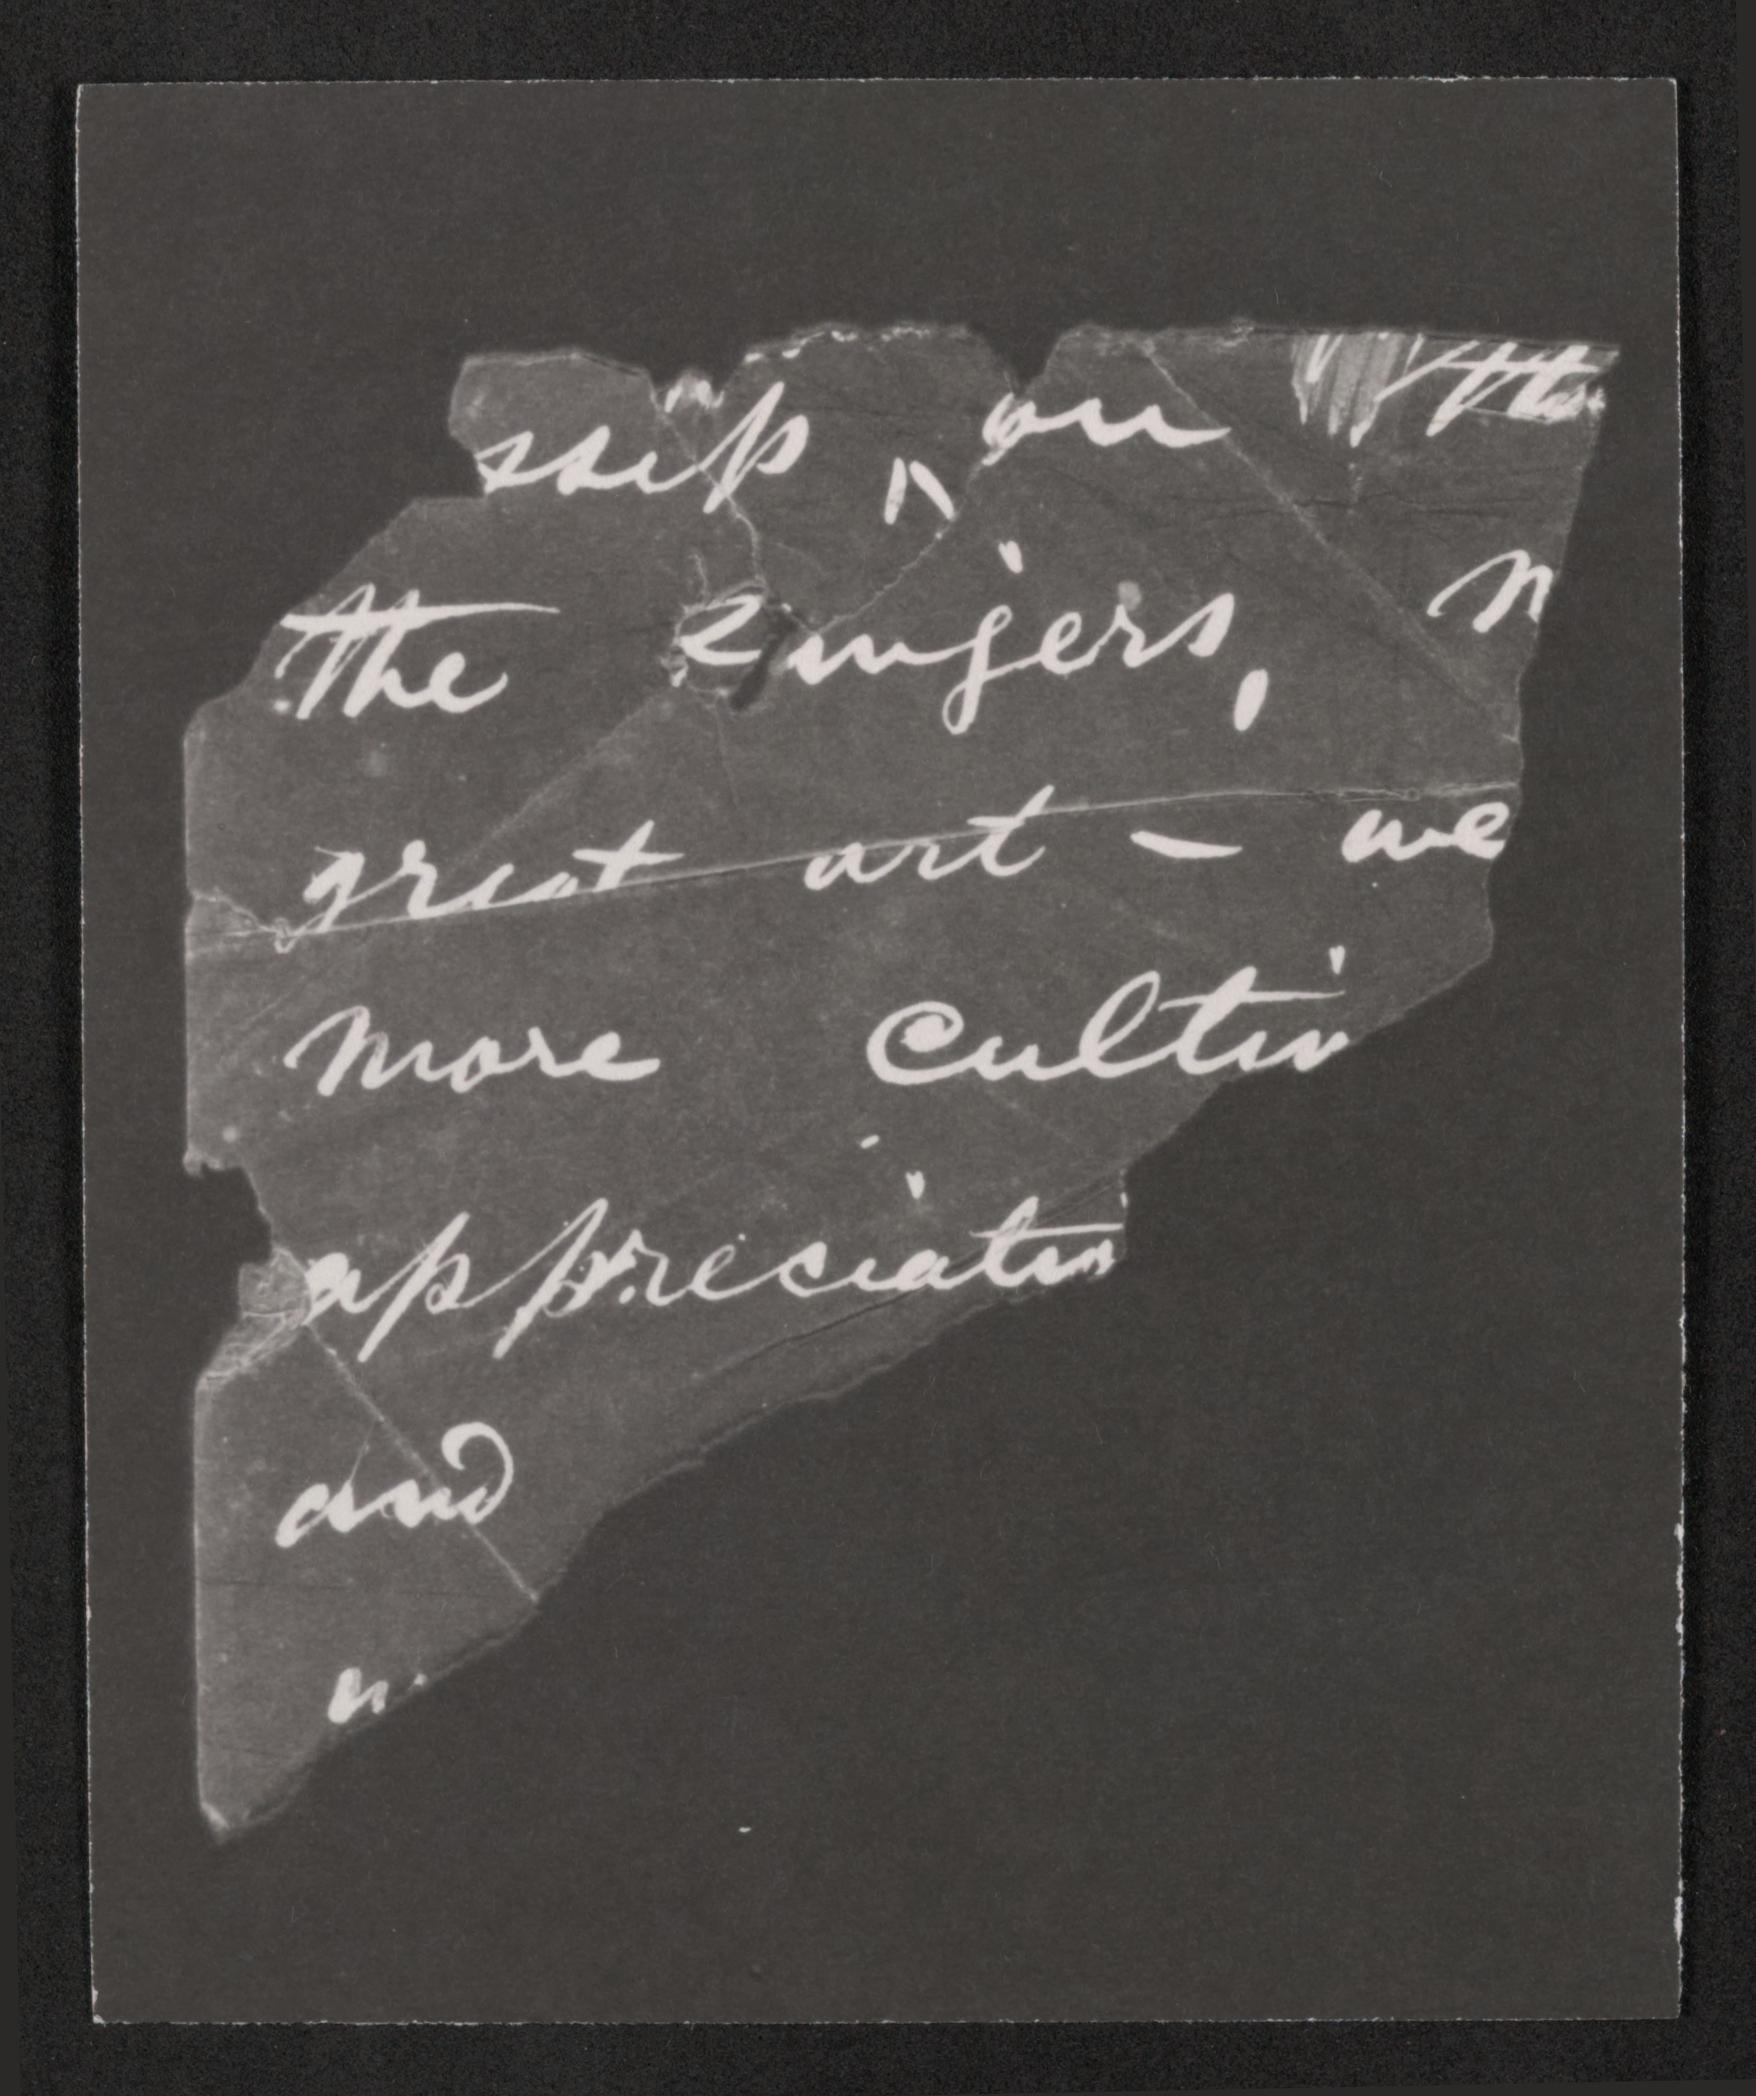 ssip ‸ on the
the Singers,
great art – we
more Cultiv
appreciation
and